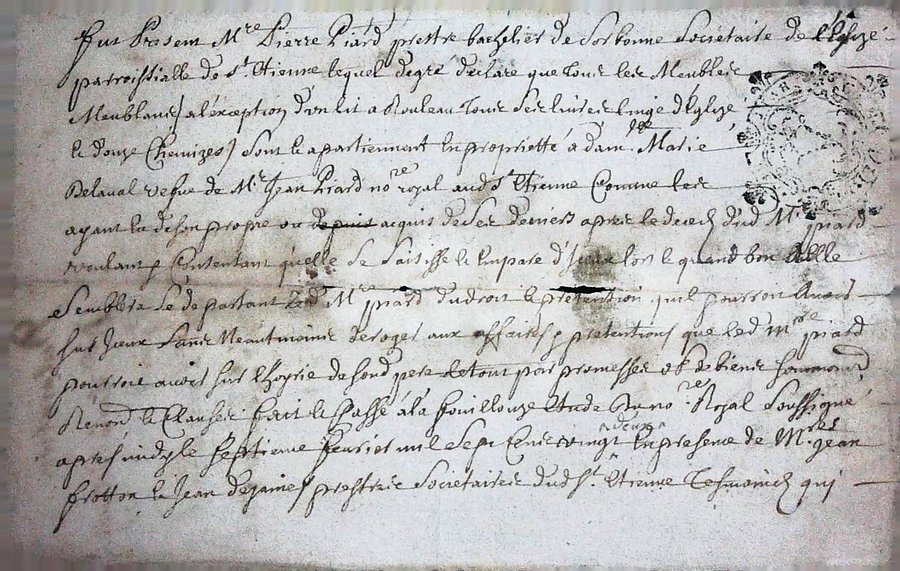 Fut Présent Mre Pierre Piard prettre bachelier de Sorbonne Societaire de l'Eglize
parroissialle de St. Etienne lequel degré declare que tous les Meubles
Meublans, a l'exception d'un lit a Rouleau tous ses livres linge d'Eglize
le douze Chemizes) sont le apartiennent en proprietté a dam.lle Marie
Delaval vefue de Mr. Jean Piard nore royal aud St Etienne Comme les
ayant la de son propre ou depuis acquis de ses deniers apres le deced dud Mr piard
voulant & Consentant qu'elle se saisisse le Empare d'Iceux lors le quand bon Alle
Semblera Se departant led Mre piard du droit le prétention qu'il pourroit Avoir
sur Iceux Sans Neautmoins deroger aux affaires & prétentions que led mre piard
pourroit avoir sur l'hoyrie de sond pere le tout par promesses obl de biens
Renond le Clauses fait le Passé a la fouillouze Etude du nore Royal Soussigné
apres midy le septieme feurier mil Sept Cens vingt deux En presence de Mres Jean
frotton le Jean prestres Societaires dud St. Etienne Tesmoins qui